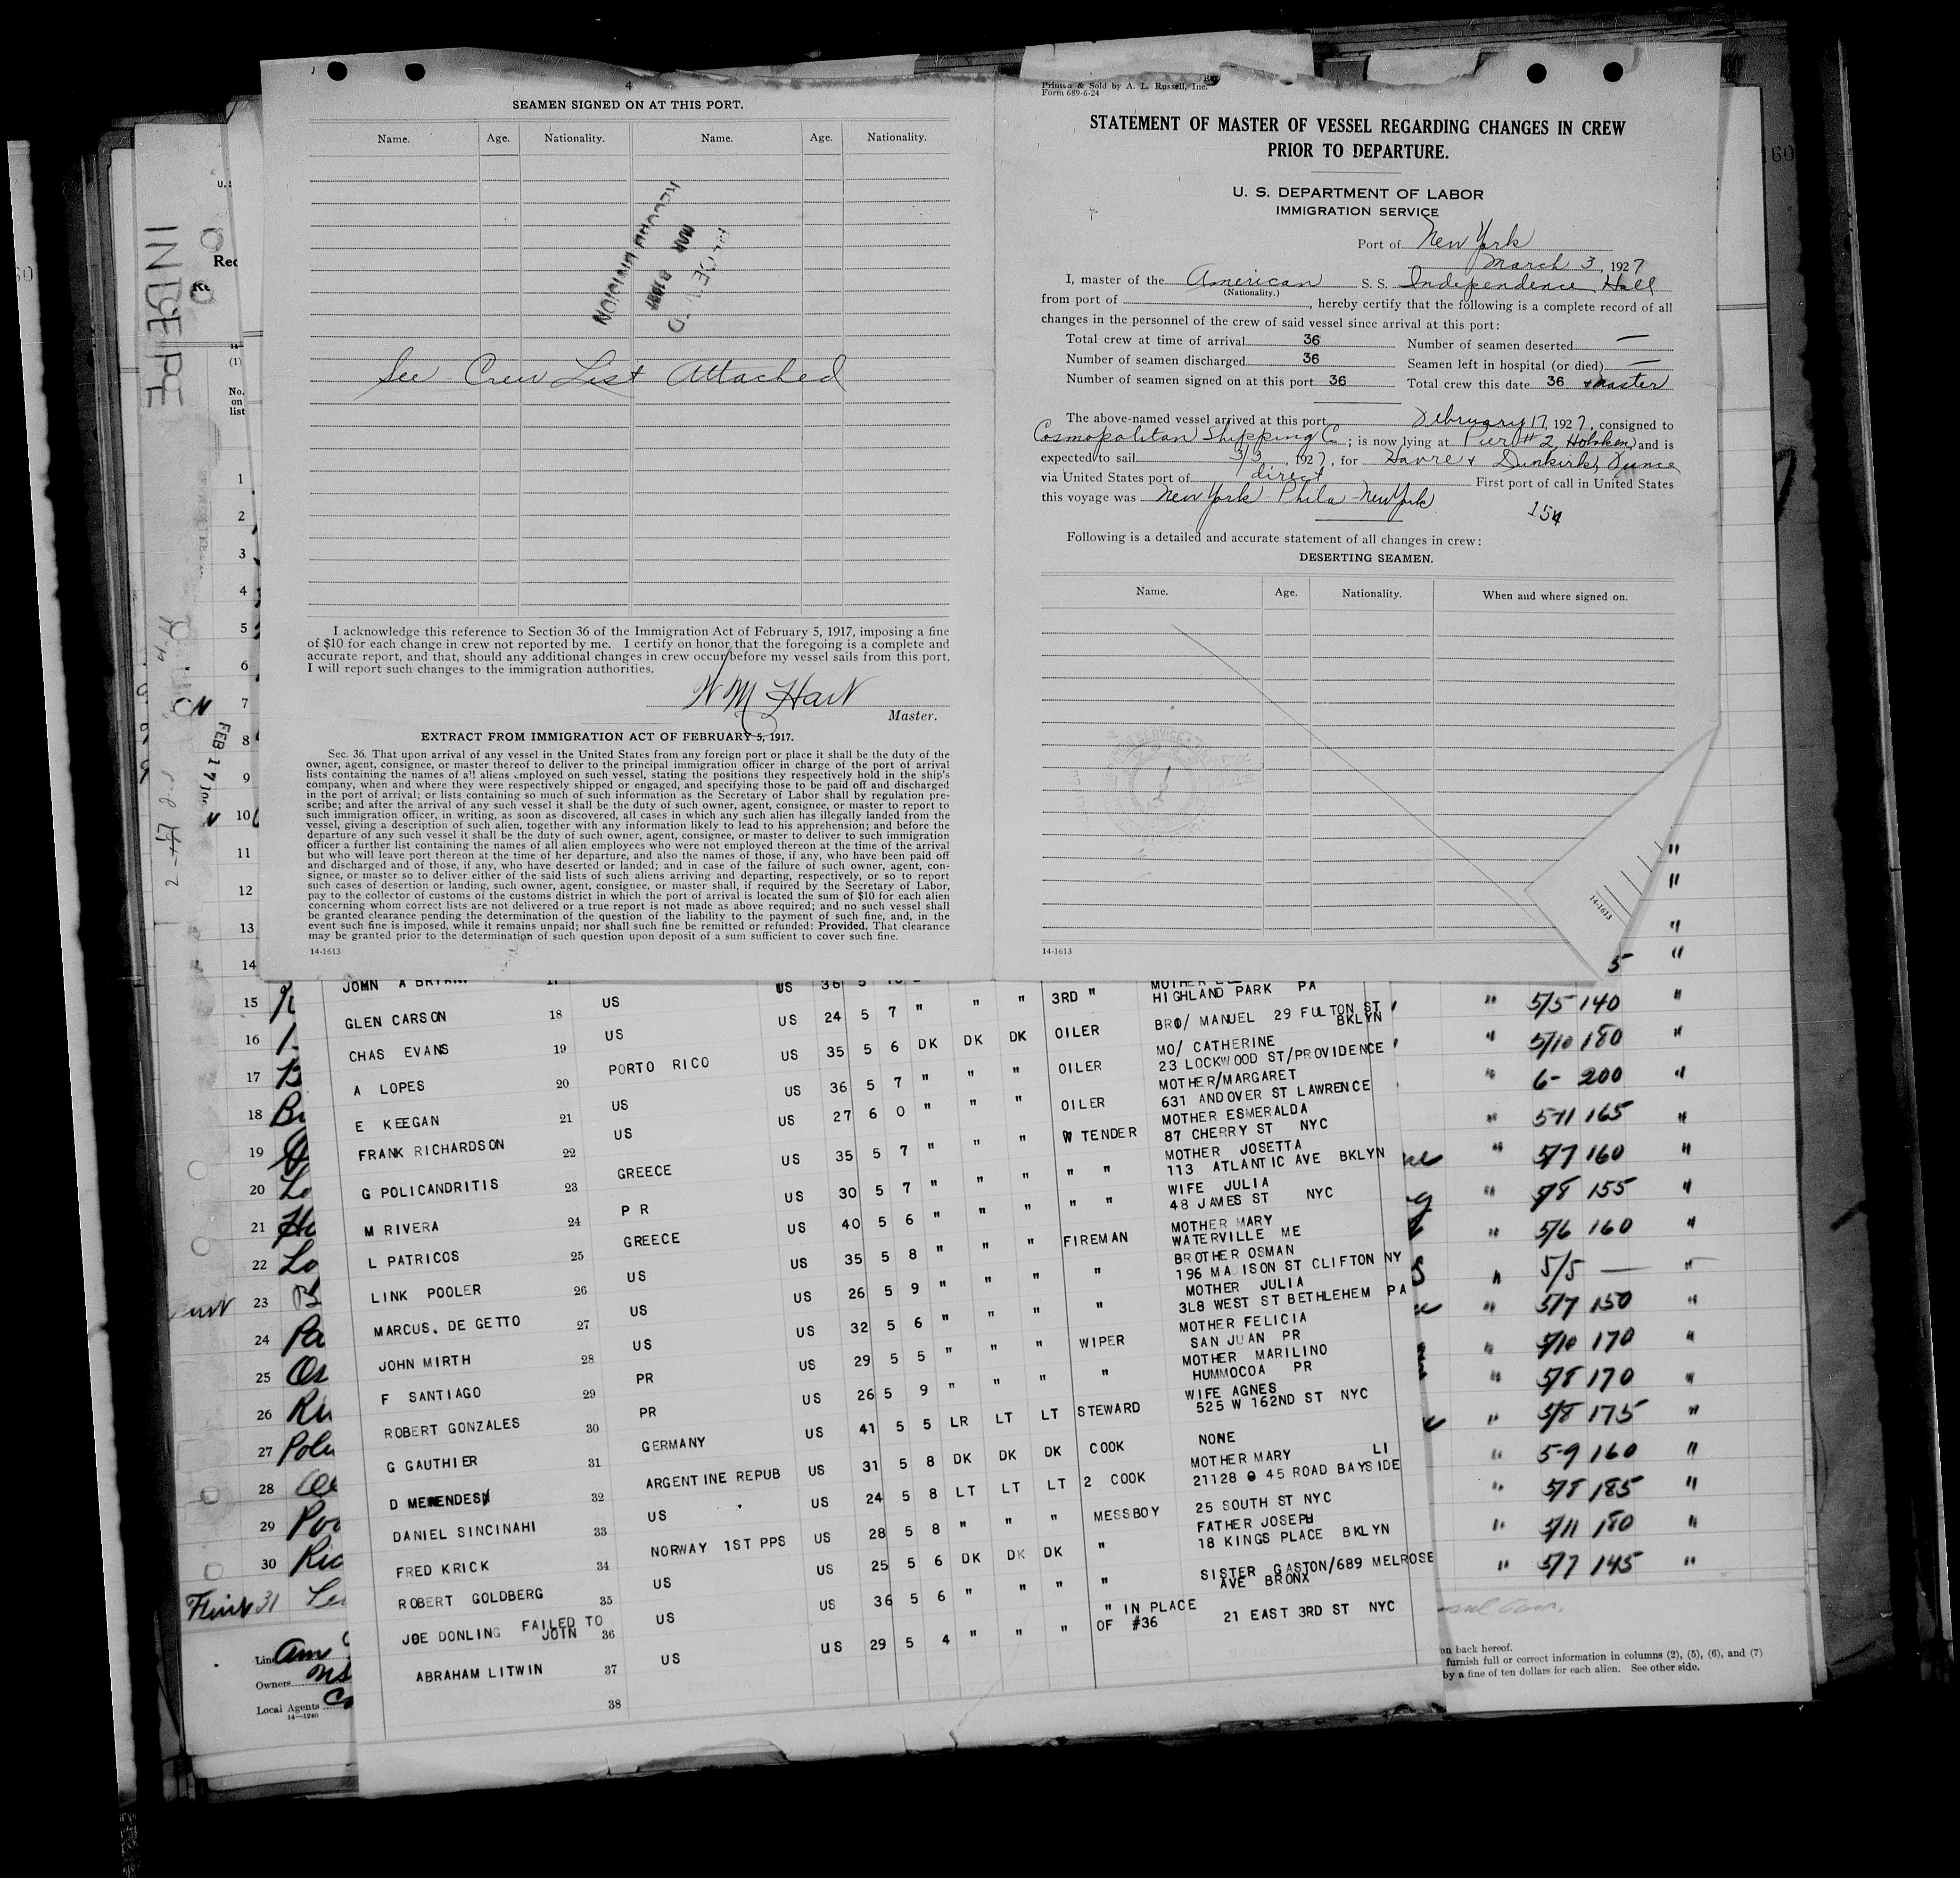 4
SEAMEN SIGNED ON AT THIS PORT.
Name. Age. Nationality. Name. Age. Nationality.
See Crew List Attached
I acknowledge this reference to Section 36 of the Immigration Act of February 5, 1917, imposing a fine
of $10 for each change in crew not reported by me. I certify on honor that the foregoing is a complete and
accurate report, and that, should any additional changes in crew occur before my vessel sails from this port,
I will report such changes to the immigration authorities.
W M Hart
Master.
EXTRACT FROM IMMIGRATION ACT OF FEBRUARY 5, 1917.
Sec. 36. That upon arrival of any vessel in the United States from any foreign port or place it shall be the duty of the
owner, agent, consignee, or master thereof to deliver to the principal immigration officer in charge of the port of arrival
lists containing the names of all aliens employed on such vessel, stating the positions they respectively hold in the ship's
company, when and where they were respectively shipped or engaged, and specifying those to be paid off and discharged
in the port of arrival; or lists containing so much of such information as the Secretary of Labor shall by regulation pre-
scribe; and after the arrival of any such vessel it shall be the duty of such owner, agent, consignee, or master to report to
such immigration officer, in writing, as soon as discovered, all cases in which any such alien has illegally landed from the
vessel, giving a description of such alien, together with any information likely to lead to his apprehension; and before the
departure of any such vessel it shall be the duty of such owner, agent, consignee, or master to deliver to such immigration
officer a further list containing the names of all alien employees who were not employed thereon at the time of the arrival
but who will leave port thereon at the time of her departure, and also the names of those, if any, who have been paid off
and discharged and of those, if any, who have deserted or landed; and in case of the failure of such owner, agent, con-
signee, or master so to deliver either of the said lists of such aliens arriving and departing, respectively, or so to report
such cases of desertion or landing, such owner, agent, consignee, or master shall, if required by the Secretary of Labor,
pay to the collector of customs of the customs district in which the port of arrival is located the sum of $10 for each alien
concerning whom correct lists are not delivered or a true report is not made as above required; and no such vessel shall
be granted clearance pending the determination of the question of the liability to the payment of such fine, and, in the
event such fine is imposed, while it remains unpaid; nor shall such fine be remitted or refunded: Provided, That clearance
may be granted prior to the determination of such question upon deposit of a sum sufficient to cover such fine.
14-1613
Printed & Sold by A. L. Russell, Inc.
Form 689-6-24
STATEMENT OF MASTER OF VESSEL REGARDING CHANGES IN CREW
PRIOR TO DEPARTURE.
U. S. DEPARTMENT OF LABOR
IMMIGRATION SERVICE
Port of New York
March 3, 1927
I, master of the American S. S. Independence Hall
(Nationality.)
from port of , hereby certify that the following is a complete record of all
changes in the personnel of the crew of said vessel since arrival at this port:
Total crew at time of arrival 36 Number of seamen deserted —
Number of seamen discharged 36 Seamen left in hospital (or died) —
Number of seamen signed on at this port 36 Total crew this date 36 + Master
The above-named vessel arrived at this port February 17, 1927, consigned to
Cosmopolitan Shipping Co ; is now lying at Pier # 2 Hoboken and is
expected to sail 3/3, 1927, for Havre & Dunkirk, France
via United States port of direct First port of call in United States
this voyage was New York Phila - New York
154
Following is a detailed and accurate statement of all changes in crew:
DESERTING SEAMEN.
Name. Age. Nationality. When and where signed on.
14-1613
14-1613
INDEPE
FEB 17
No. on list
1
2
3
4
5
6
7
8
9
10
11
12
13
14
15
16
17
18
19
20
21
22
23
24
25
26
27
28
29
30
31
US 36 5
GLEN CARSON 18 US US 24 5 7 " " " 3RD " HIGHLAND PARK PA
CHAS EVANS 19 US US 35 5 6 DK DK DK OILER BRO/ MANUEL 29 FULTON ST BKLYN
A LOPES 20 PORTO RICO US 36 5 7 " " " OILER MO/ CATHERINE 23 LOCKWOOD ST/PROVIDENCE
E KEEGAN 21 US US 27 6 0 " " " OILER MOTHER/MARGARET 631 ANDOVER ST LAWRENCE
FRANK RICHARDSON 22 US US 35 5 7 " " " W TENDER MOTHER ESMERALDA 87 CHERRY ST NYC
G POLICANDRITIS 23 GREECE US 30 5 7 " " " " " MOTHER JOSETTA 113 ATLANTIC AVE BKLYN
M RIVERA 24 P R US 40 5 6 " " " " " WIFE JULIA 48 JAMES ST NYC
L PATRICOS 25 GREECE US 35 5 8 " " " FIREMAN MOTHER MARY WATERVILLE ME
LINK POOLER 26 US US 26 5 9 " " " " BROTHER OSMAN 196 MADISON ST CLIFTON NY
MARCUS. DE GETTO 27 US US 32 5 6 " " " " MOTHER JULIA 3L8 WEST ST BETHLEHEM PA
JOHN MIRTH 28 US US 29 5 5 " " " WIPER MOTHER FELICIA SAN JUAN PR
F SANTIAGO 29 PR US 26 5 9 " " " " MOTHER MARILINO HUMMOCOA PR
ROBERT GONZALES 30 PR US 41 5 5 LR LT LT STEWARD WIFE AGNES 525 W 162ND ST NYC
G GAUTHIER 31 GERMANY US 31 5 8 DK DK DK COOK NONE
D MENENDES 32 ARGENTINE REPUB US 24 5 8 LT LT LT 2 COOK MOTHER MARY LI 21128 @ 45 ROAD BAYSIDE
DANIEL SINCINAHI 33 US US 28 5 8 " " " MESSBOY 25 SOUTH ST NYC
FRED KRICK 34 NORWAY 1ST PPS US 25 5 6 DK DK DK " FATHER JOSEPH 18 KINGS PLACE BKLYN
ROBERT GOLDBERG 35 US US 36 5 6 " " " " SISTER GASTON/689 MELROSE AVE BRONX
JOE DONLING FAILED TO JOIN 36 US US 29 5 4 " " " " IN PLACE OF #36 21 EAST 3RD ST NYC
ABRAHAM LITWIN 37 US
38
5 "
" 5/5 140 "
" 5/10 180 "
" 6- 200 "
" 5-11 165 "
" 5/7 160 "
" 5/8 155 "
" 5/6 160 "
" 5/5 — "
" 5/7 150 "
" 5/10 170 "
" 5/8 170 "
" 5/8 175 "
" 5-9 160 "
" 5/8 185 "
" 5/11 180 "
" 5/7 145 "
Owners
Local Agents
14-1240
on back hereof.
furnish full or correct information in columns (2), (5), (6), and (7)
by a fine of ten dollars for each alien. See other side.